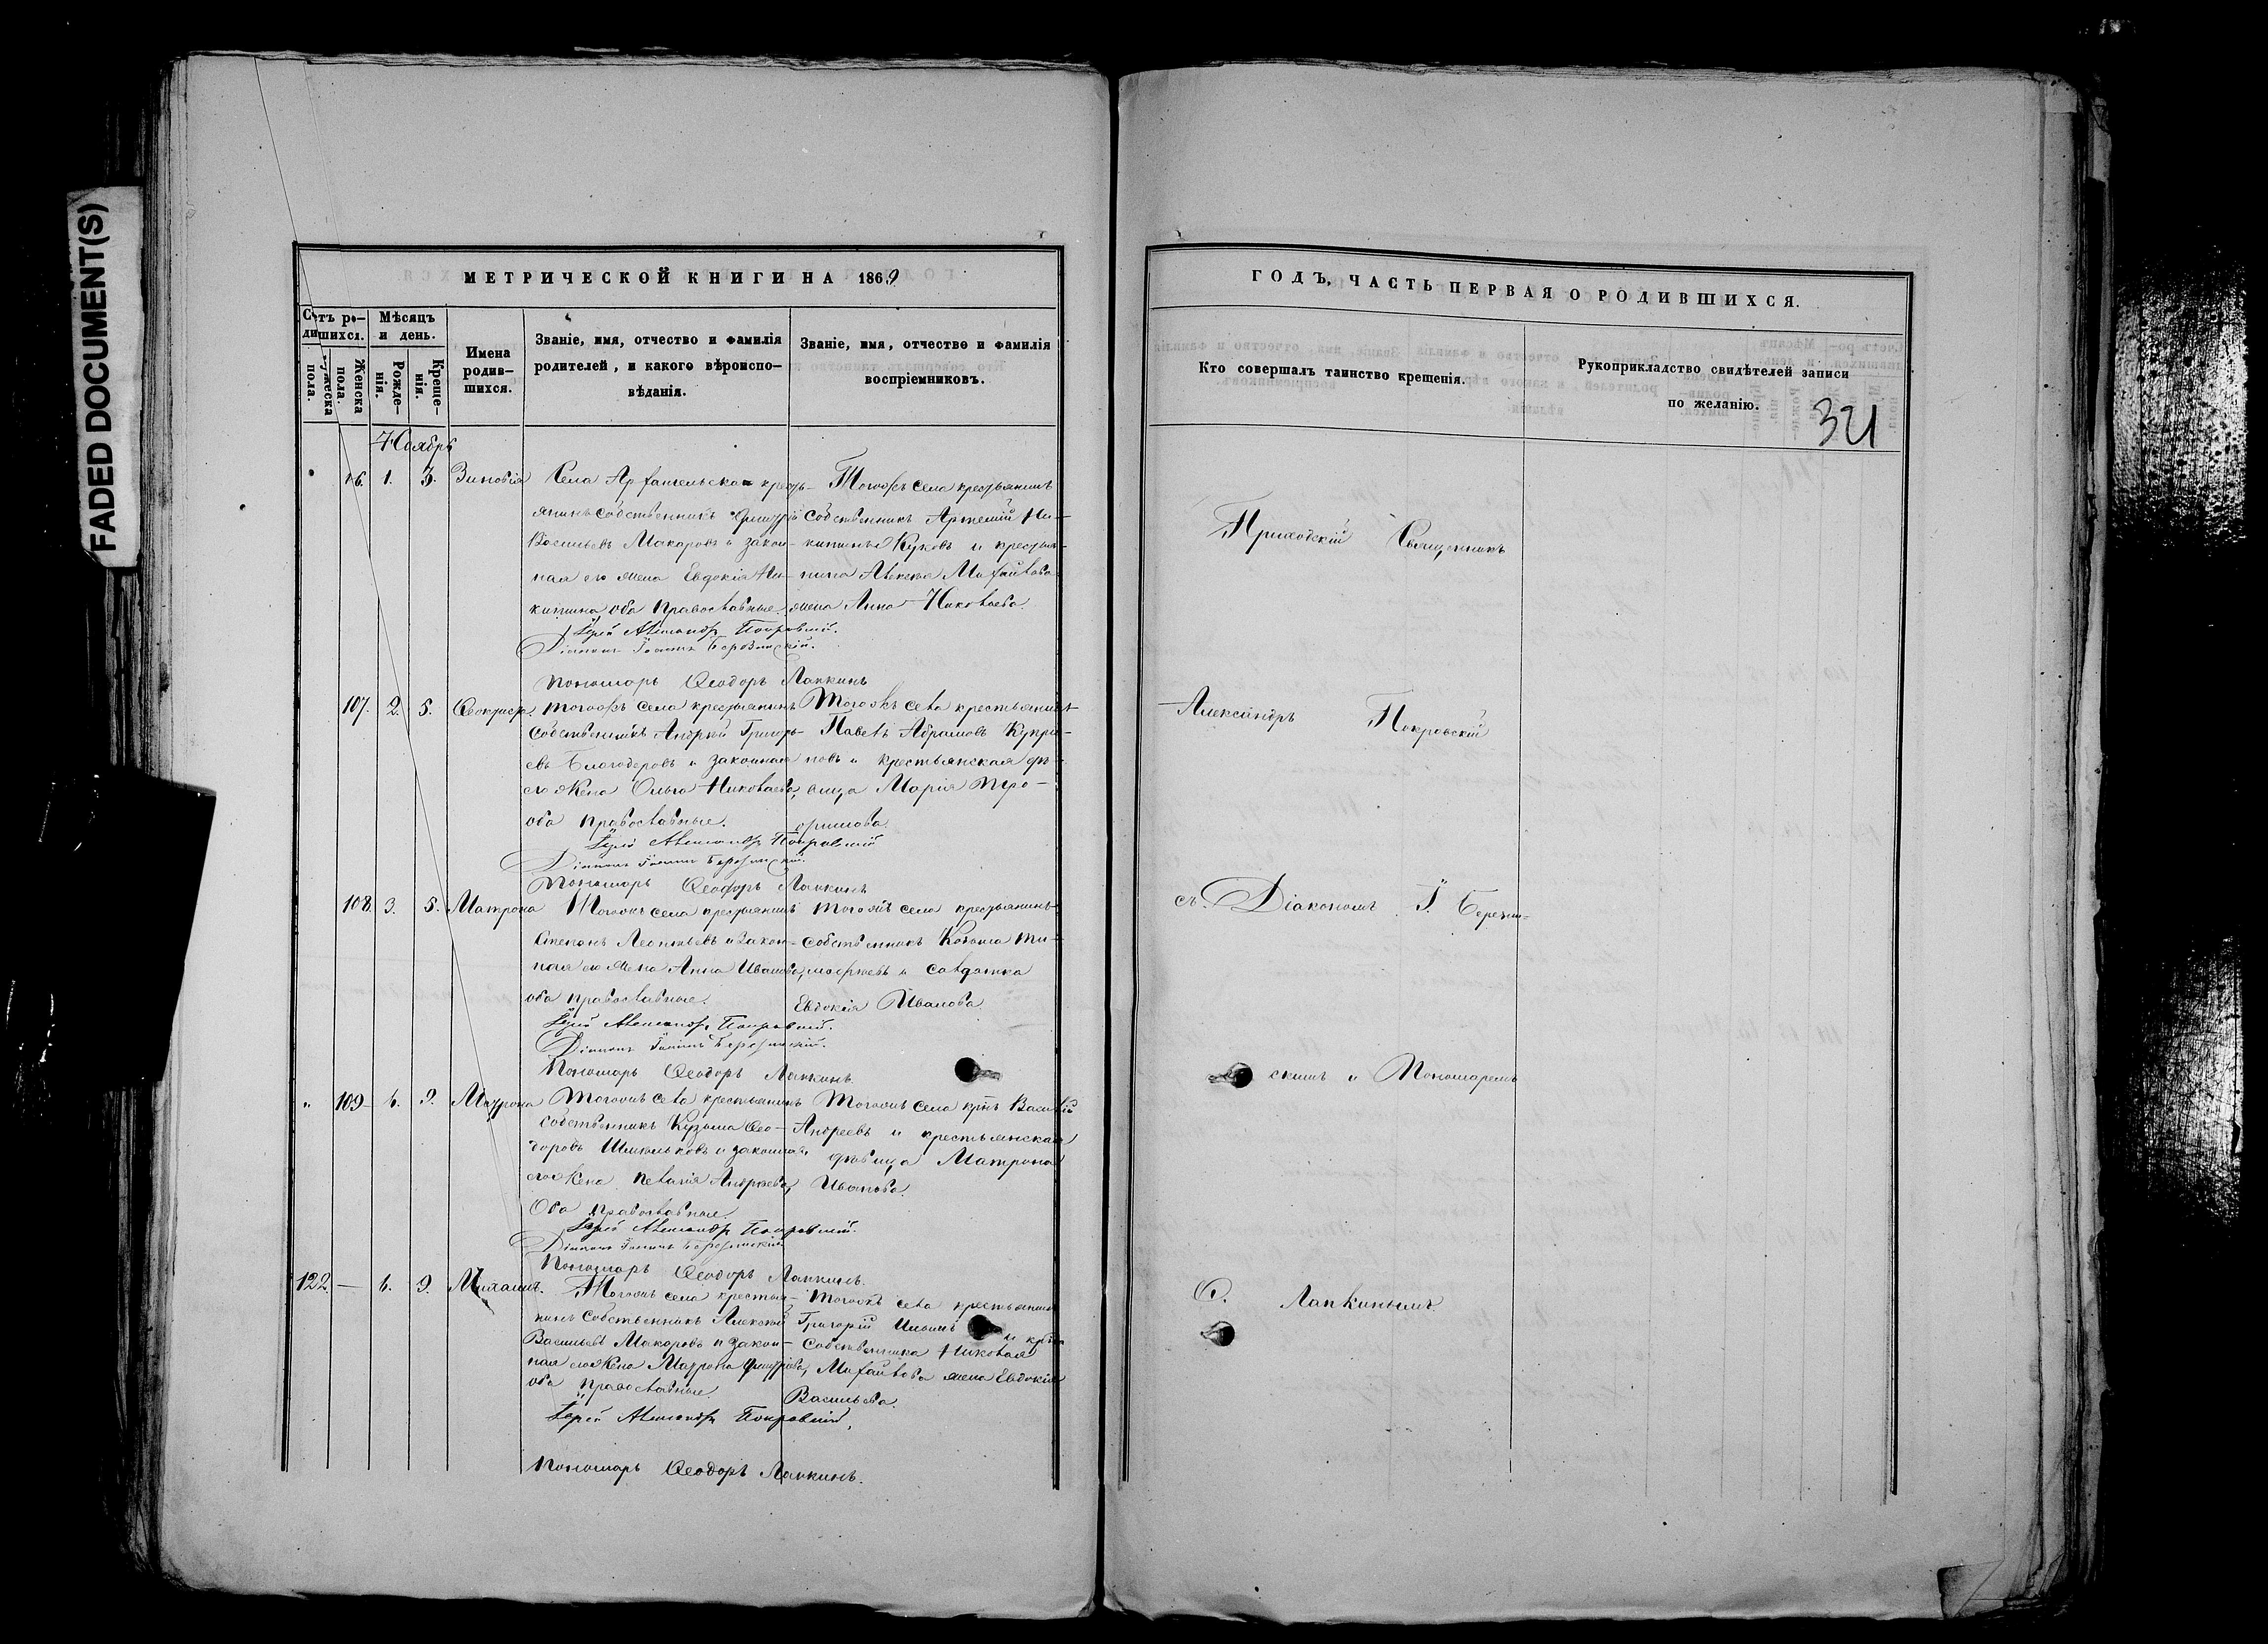 FADED DOCUMENT(S)
МЕТРИЧЕСКОЙ КНИГИ НА 1869
Счетъ родившихся.
Мужеска пола.
Женска пола.
Мѣсяцъ и день.
Рожденія.
Крещенія.
Имена родившихся.
Званіе, имя, отчество и фамилія
родителей, и какого вѣроиспо-
вѣданія.
Званіе, имя, отчество и фамилія
воспріемниковъ.
Ноябрь
106. 1. 3. Зиновія
Села Архангельскаго кресть-
янинъ собственникъ Димитрій
Васильевъ Макаровъ и закон-
ная его жена Евдокія Ни-
китина оба православные.
Тогожъ села крестьянинъ
собственникъ Артемій Ни-
китинъ Жуковъ и крестья-
нина Алексѣя Михайлова
жена Анна Николаева.
Іерей Александръ Покровскій.
Діаконъ Іоаннъ Березинскій.
Пономарь Ѳеодоръ Лапкинъ
107. 2. 5. Ѳеоктиста.
Тогожъ села крестьянинъ
собственникъ Андрей Григорь-
евъ Благодеровъ и законная
его жена Ольга Николаева,
оба православные.
Тогожъ села крестьянинъ
Павелъ Абрамовъ Купри-
новъ и крестьянская дѣ-
вица Марія Тро-
фимова.
Іерей Александръ Покровскій
Діаконъ Іоаннъ Березинскій.
Пономарь Ѳеодоръ Лапкинъ
108. 3. 5. Матрона
Тогожъ села крестьянинъ
Степанъ Леонтьевъ и закон-
ная его жена Анна Иванова,
оба православные.
Тогожъ села крестьянинъ
собственникъ Козьма Ти-
моѳеевъ и солдатка
Евдокія Иванова.
Іерей Александръ Покровскій.
Діаконъ Іоаннъ Березинскій.
Пономарь Ѳеодоръ Лапкинъ.
109 6. 9. Матрона
Тогожъ села крестьянинъ
собственникъ Кузьма Ѳео-
доровъ Шмельковъ и законная
его жена Пелагія Андреева,
Оба православные.
Тогожъ села крнъ Василій
Андреевъ и крестьянская
дѣвица Матрона
Иванова.
Іерей Александръ Покровскій.
Діаконъ Іоаннъ Березинскій
Пономарь Ѳеодоръ Лапкинъ.
122. — 6. 9. Михаилъ.
Тогожъ села крестья-
нинъ собственникъ Алексѣй
Васильевъ Макаровъ и закон-
ная его жена Матрона Димитріева,
оба православные.
Тогожъ села крестьянинъ
Григорій Ильинъ и
собственника Николая
Михайлова жена Евдокія
Васильева.
Іерей Александръ Покровскій,
Пономарь Ѳеодоръ Лапкинъ.
ГОДЪ, ЧАСТЬ ПЕРВАЯ О РОДИВШИХСЯ.
Кто совершалъ таинство крещенія.
Рукоприкладство свидѣтелей записи
по желанію.
321
Приходскій Священникъ
Александръ Покровскій
съ Діакономъ І. Березин-
скимъ и Пономаремъ
Ѳ. Лапкинымъ.